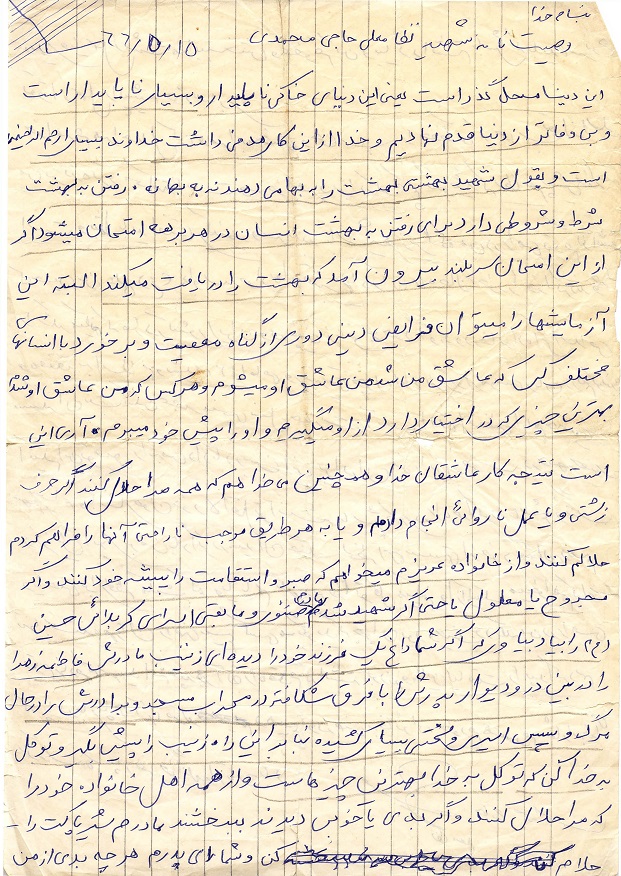 بسام خدا
وصیت نامه شهید نظامعلی حاجی محمدی ۶۶/۵/۱۵
این دنیا محل گذر است یعنی این دنیای خاکی ناپایدار و بسیار ناپایدار است
و بی وفاتر از دنیا قدم نهادیم و خدا از این کار هدفی داشت خداوند بسیار ارحم الراحمین
است و بقول شهید بهشتی بهشت را به بها می دهند نه به بهانه . رفتن به بهشت
شرط و شروطی دارد برای رفتن به بهشت انسان در هر برهه امتحان میشود اگر
از این امتحان سربلند بیرون آمد که بهشت را دریافت میکند البته این
آزمایشها را میتوان فرایض دینی دوری از گناه معصیت و برخورد با انسانهای
مختلف کسی که عاشق من شد من عاشق او میشوم و هر کس که من عاشق او شدم
بهترین چیزی که در اختیار دارد از او میگیرم و او را پیش خود میبرم . آری این
است نتیجه کار عاشقان خدا و همچنین می خواهم که همه مرا حلال کنند اگر حرف
زشتی و یا عمل ناروائی انجام دادم و یا به هر طریق موجب ناراحتی آنها را فراهم کردم
حلالم کنند و از خانواده عزیزم میخواهم که صبر و استقامت را پیشه خود کنند و اگر
مجروح یا معلول یا حتی اگر شهید شدم صبور و مابقی اسرای کربلائی حسین
(ع) را بیاد بیاور که اگر شما داغ یک فرزند خود را دیده ای زینب مادرش فاطمه زهرا
را در بین در و دیوار پدرش را با فرق شکافته در محراب مسجد و برادرش را در حال
مرگ و سپس اسیری و سختی بسیار کشیده بنابراین راه زینب را پیش بگیر و توکل
به خدا کن که توکل به خدا بهترین چیزهاست و از همه اهل خانواده خود را
که مرا حلال کنند و اگر بدی یا خوبی دیدند ببخشند مادرم شیر پاکت را
حلالم کن و شما ای پدرم هر چه بدی از من